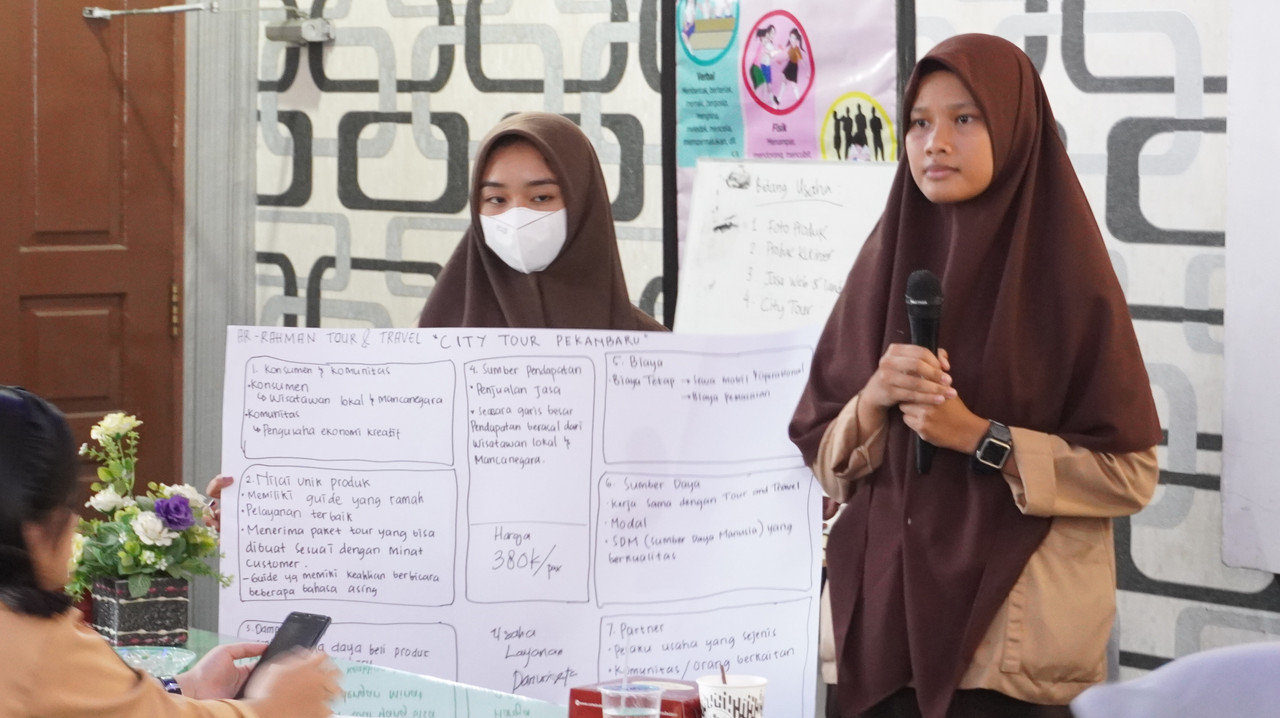 Verbal
Fisik
Bidang Usaha
1. Foto Produk
2. Produk Kuliner
3. Jasa Web &
4. City Tour
AR-RAHMAN TOUR & TRAVEL "CITY TOUR PEKAMBARU"
1. Konsumen & komunitas
• Konsumen
↳ Wisatawan lokal & Mancanegara
• Komunitas
↳ Pengusaha ekonomi kreatif
2. Nilai unik produk
• Memiliki guide yang ramah
• Pelayanan terbaik
• Menerima paket tour yang bisa
dibuat sesuai dengan minat
customer.
- Guide yg memiliki keahlian berbicara
beberapa bahasa asing
daya beli produk
4. Sumber Pendapatan
• Penjualan jasa
• secara garis besar
Pendapatan berasal dari
wisatawan lokal &
Mancanegara.
Harga
380k/
Usaha
Layanan
Pariwisata
5. Biaya
Biaya Tetap → Sewa mobil
→ Biaya pemasaran
6. Sumber Daya
• Kerja sama dengan Tour and Travel
• Modal
• SDM (Sumber Daya Manusia) yang
berkualitas
7. Partner
• Pelaku usaha yang sejenis
• Komunitas/orang berkaitan